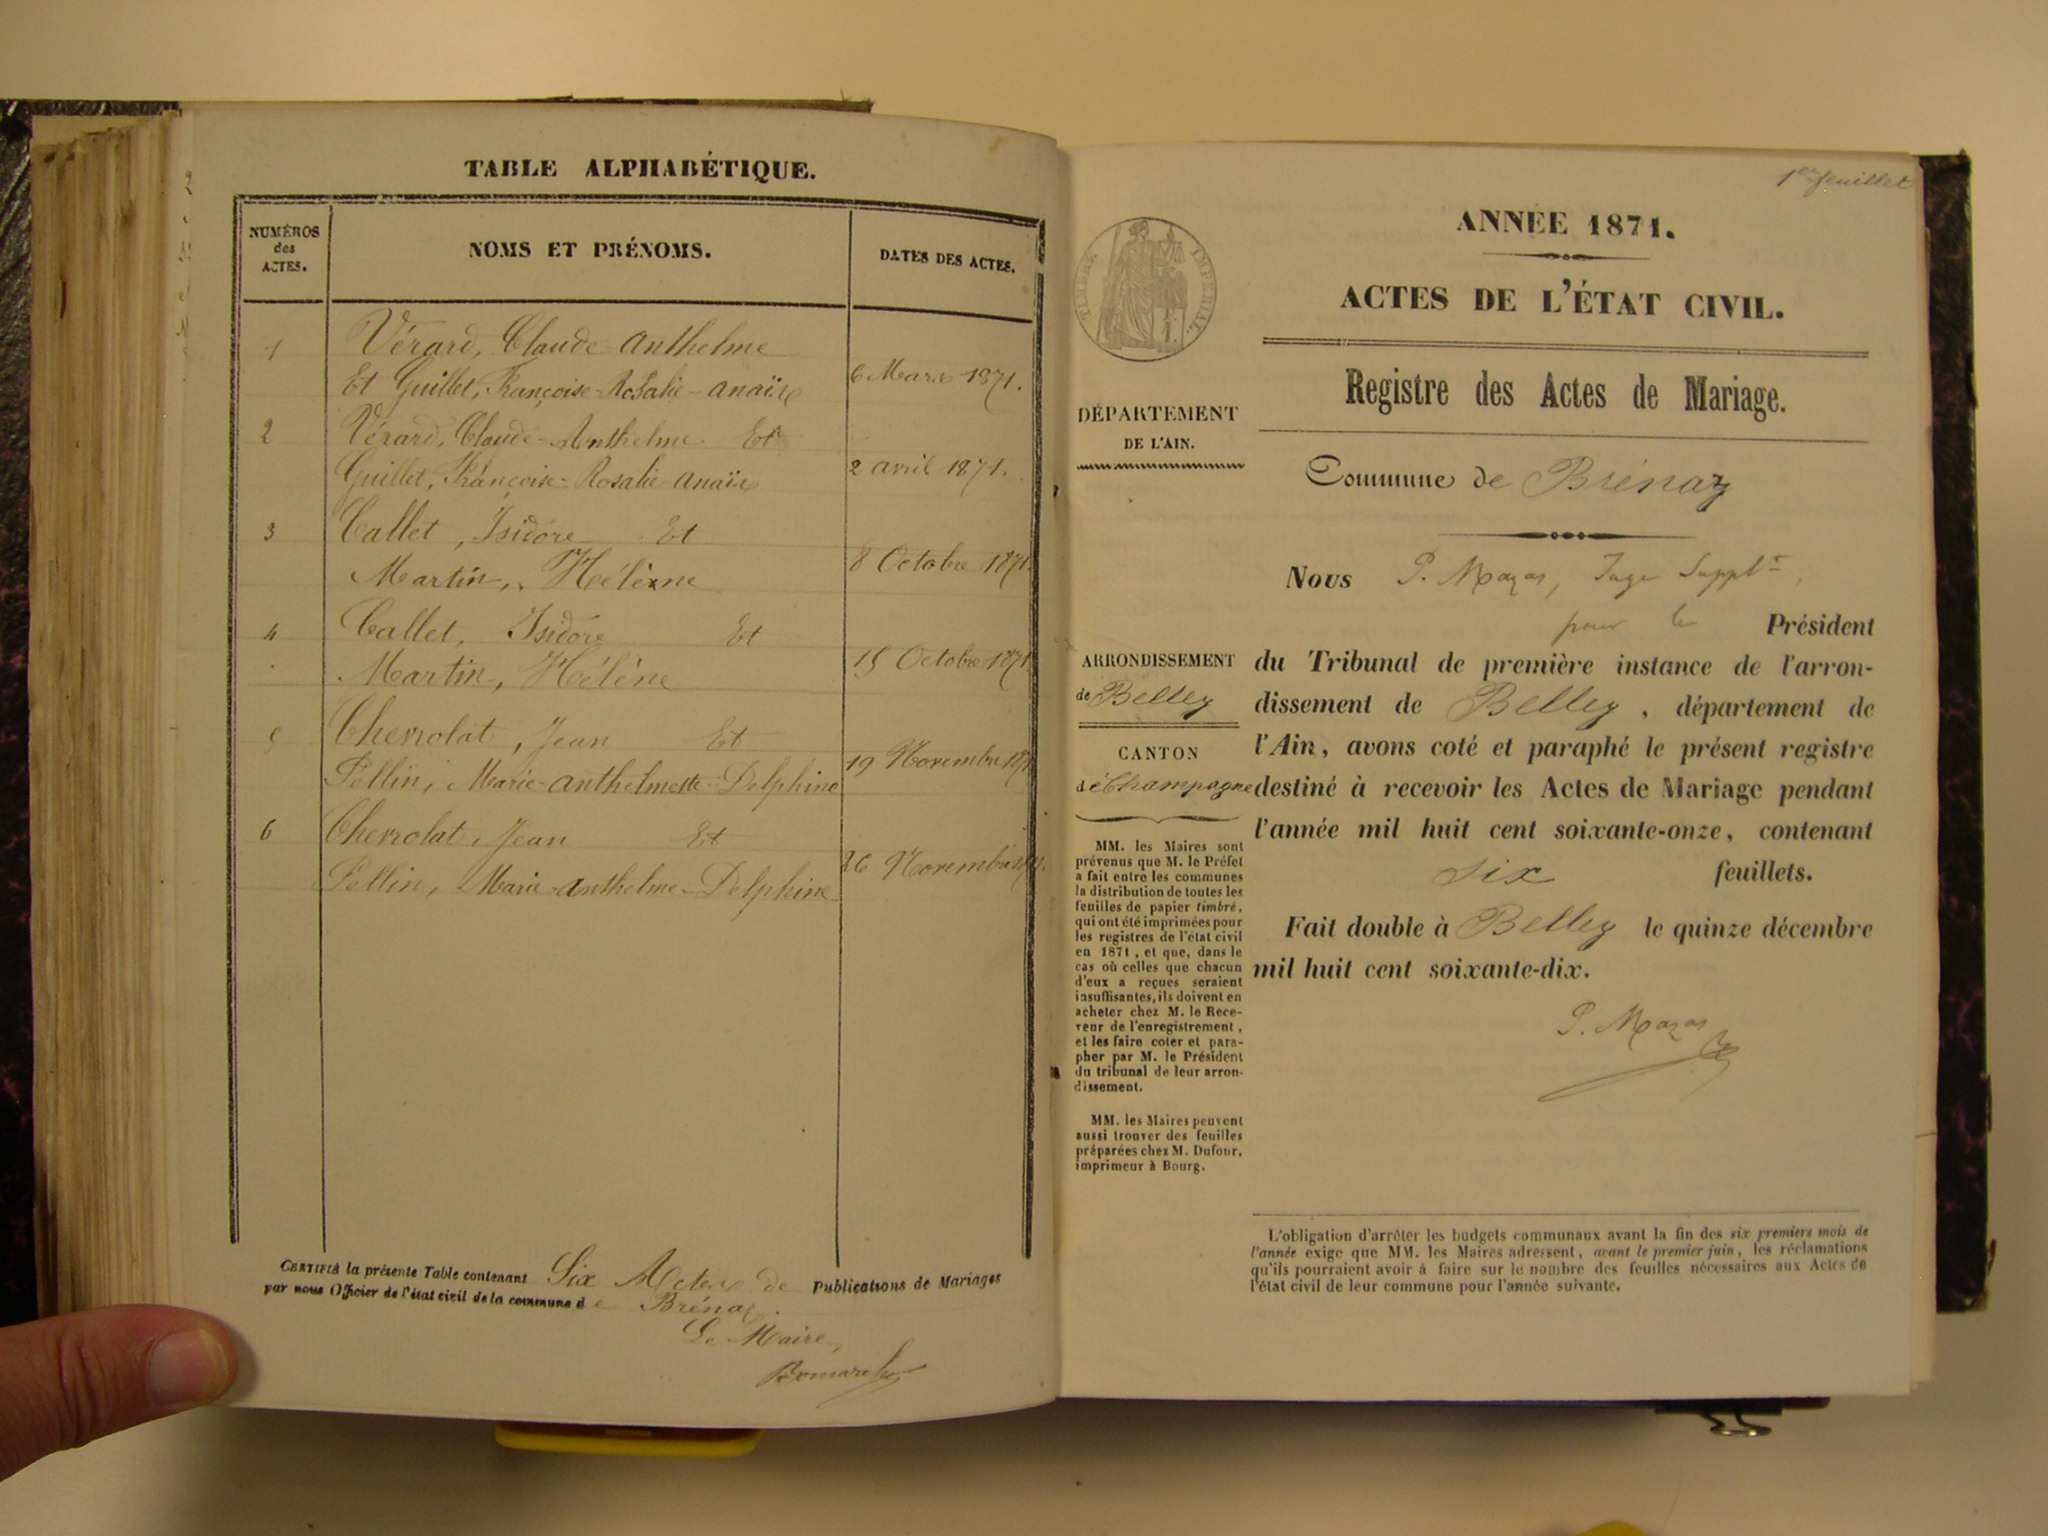 TABLE ALPHABÉTIQUE.
NUMÉROS
des
ACTES.
NOMS ET PRÉNOMS.
DATES DES ACTES.
1 Vérard, Claude-Anthelme
Et Guillet, Françoise-Rosalie-anaïs 6 Mars 1871.
2 Vérard, Claude-Anthelme Et
Guillet, Françoise-Rosalie-anaïs 2 avril 1871.
3 Callet, Isidore Et
Martin, Hélène 8 Octobre 1871
4 Callet, Isidore Et
Martin, Hélène 15 Octobre 1871
5 Cherrolat, Jean Et
Fellin, Marie-anthelmette-Delphine 19 Novembre 1871
6 Cherrolat, Jean Et
Fellin, Marie-anthelme-Delphine 26 Novembre 1871.
CERTIFIÉ la présente Table contenant Six Actes de Publications de Mariages
par nous Officier de l'état civil de la commune de Brénaz.
Le Maire,
1er feuillet
TIMBRE IMPÉRIAL.
ANNÉE 1871.
ACTES DE L'ÉTAT CIVIL.
Registre des Actes de Mariage.
DÉPARTEMENT
DE L'AIN.
Commune de Brénaz
Nous P. Mazas, Juge Supplt,
pour le Président
du Tribunal de première instance de l'arron-
dissement de Belley, département de
l'Ain, avons coté et paraphé le présent registre
destiné à recevoir les Actes de Mariage pendant
l'année mil huit cent soixante-onze, contenant
six feuillets.
Fait double à Belley le quinze décembre
mil huit cent soixante-dix.
P. Mazas
ARRONDISSEMENT
de Belley
CANTON
de Champagne
MM. les Maires sont
prévenus que M. le Préfet
a fait entre les communes
la distribution de toutes les
feuilles de papier timbré,
qui ont été imprimées pour
les registres de l'état civil
en 1871, et que, dans le
cas où celles que chacun
d'eux a reçues seraient
insuffisantes, ils doivent en
acheter chez M. le Rece-
veur de l'enregistrement,
et les faire coter et para-
pher par M. le Président
du tribunal de leur arron-
dissement.
MM. les Maires peuvent
aussi trouver des feuilles
préparées chez M. Dufour,
imprimeur à Bourg.
L'obligation d'arrêter les budgets communaux avant la fin des six premiers mois de
l'année exige que MM. les Maires adressent, avant le premier juin, les réclamations
qu'ils pourraient avoir à faire sur le nombre des feuilles nécessaires aux Actes de
l'état civil de leur commune pour l'année suivante.